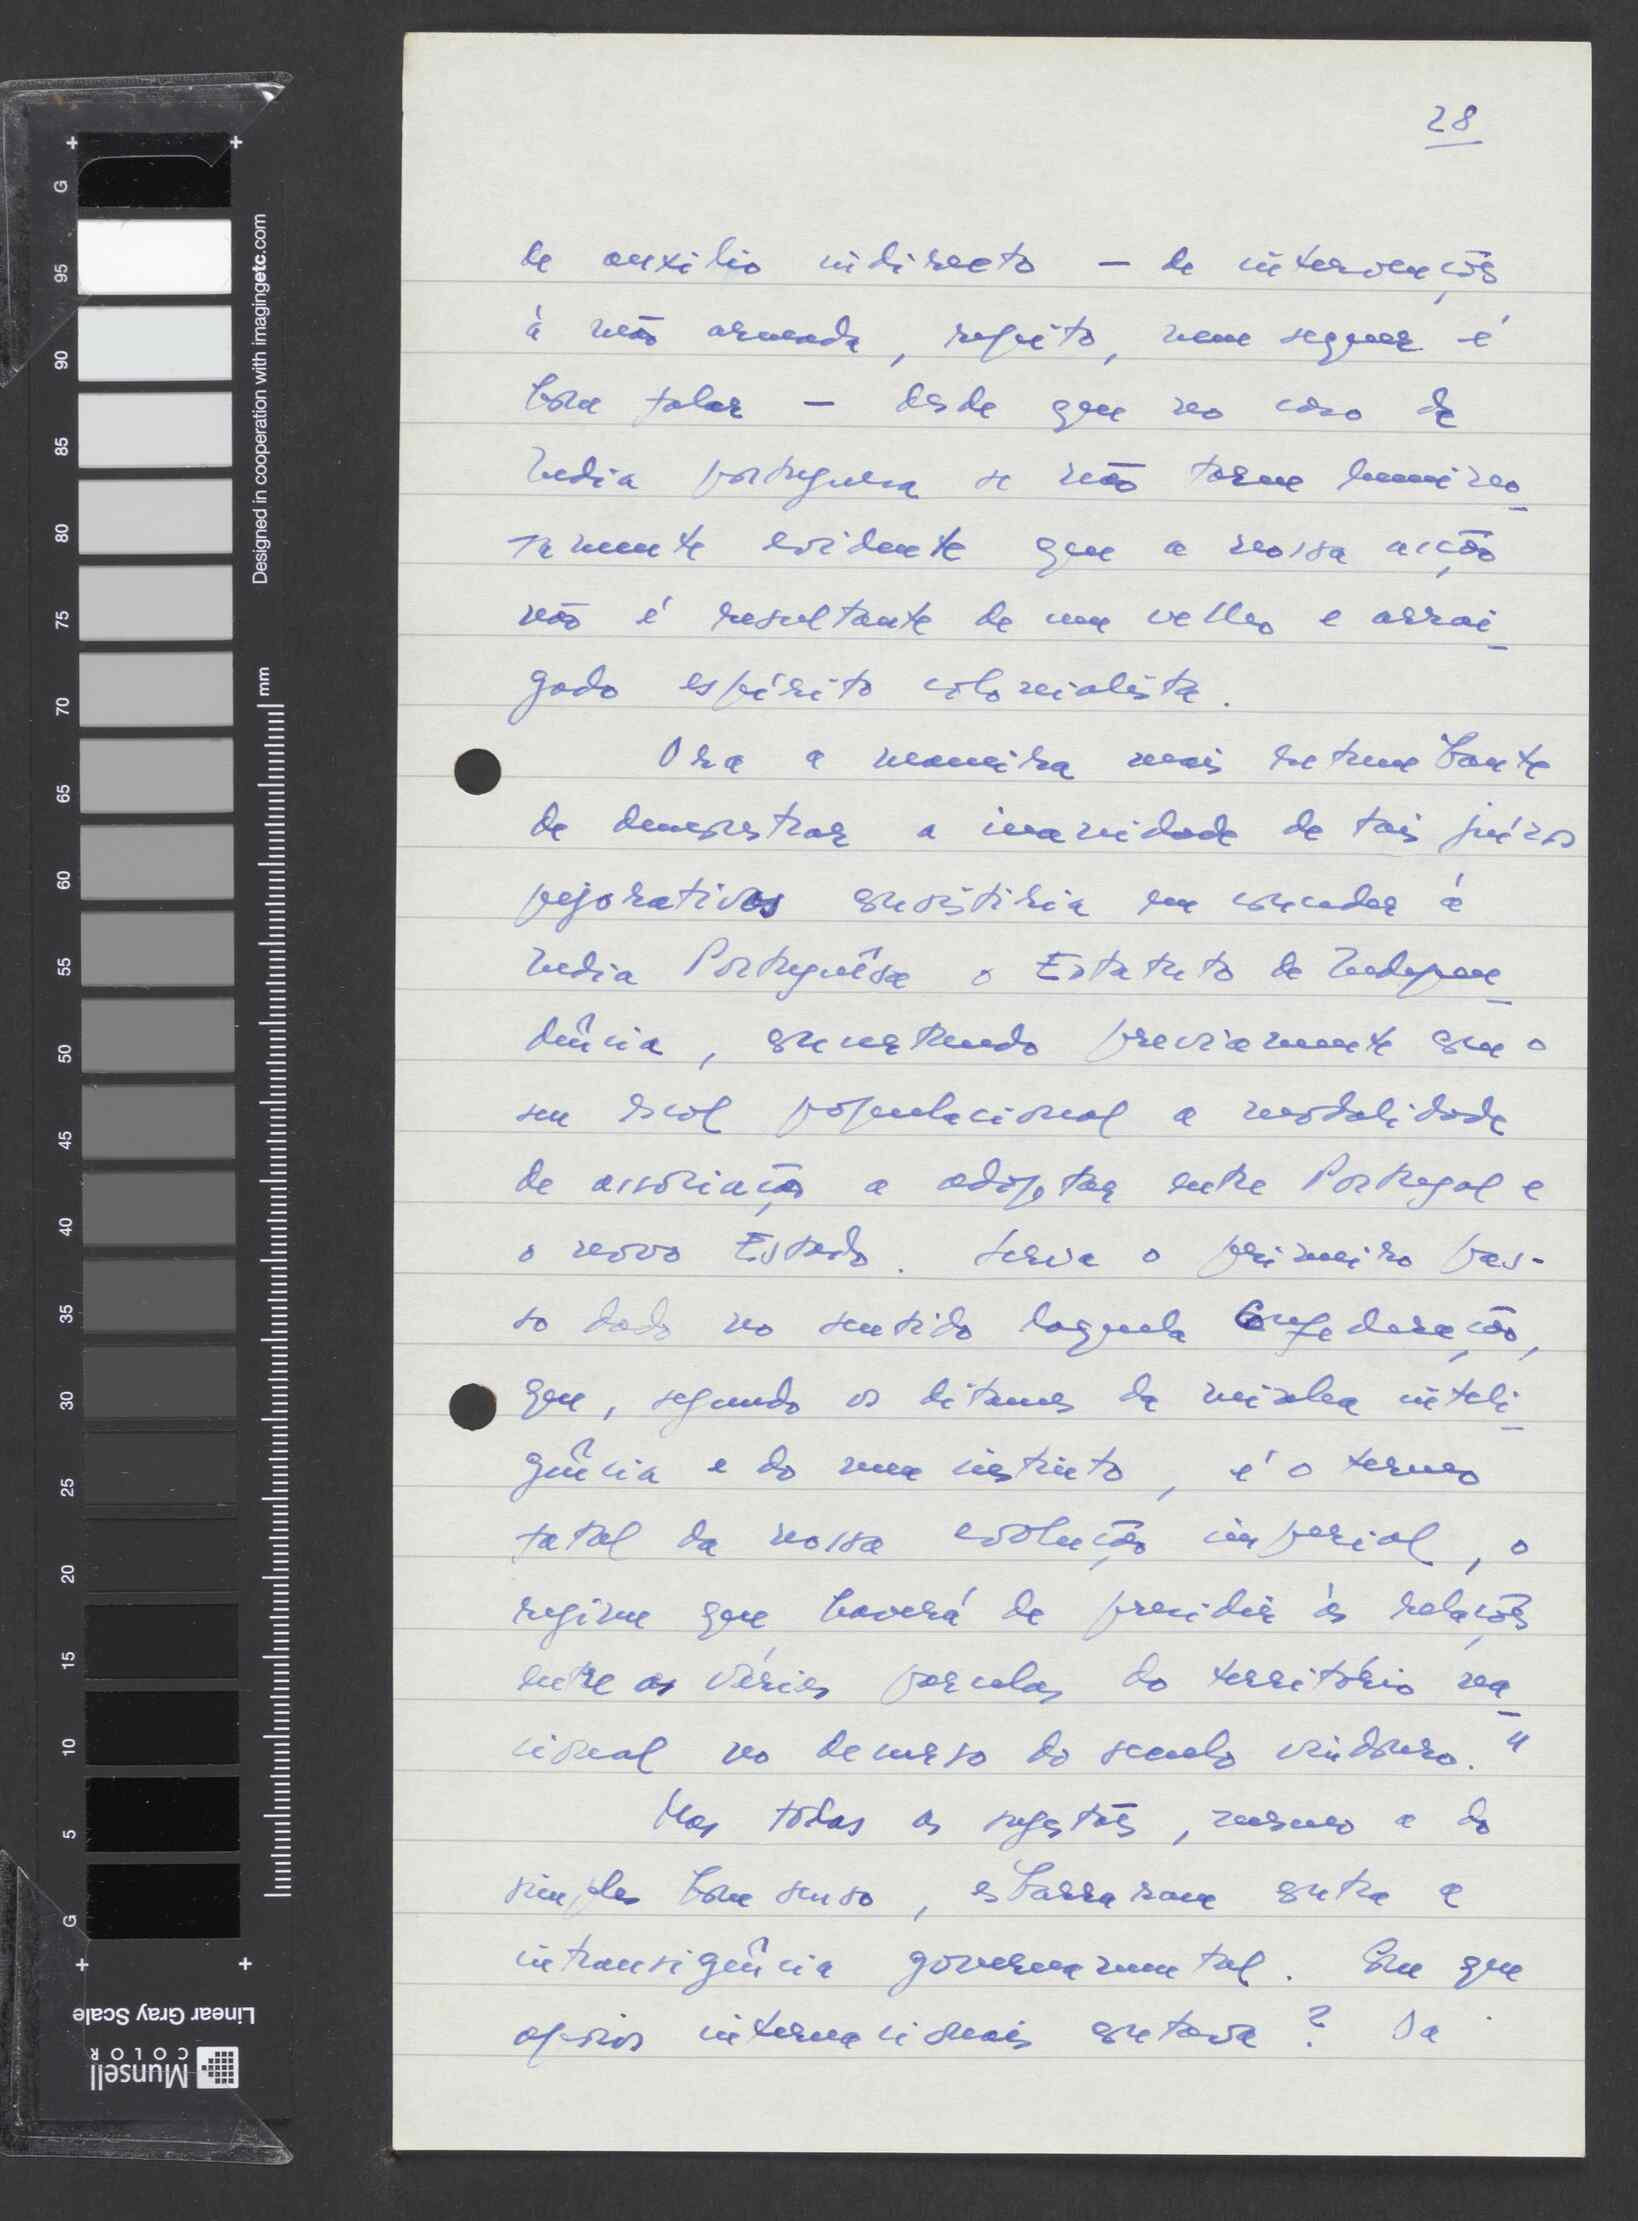 28
de auxilio indirecto — de intervenções
à mão armada, repito, nem sequer é
bom falar — desde que no caso da
India portuguesa se não torne lumino_
samente evidente que a nossa acção
não é resultante de um velho e arrai_
gado espírito colonialista.
Ora a maneira mais retumbante
de demonstrar a inanidade de tais juízos
pejorativos consistiria em conceder à
India Portuguêsa o Estatuto de Indepen_
dência, concertando previamente com o
seu escol populacional a modalidade
de associação a adoptar entre Portugal e
o novo Estado. Seria o primeiro pas-
so dado no sentido daquela Confederação,
que, segundo os ditames da minha inteli_
gência e do meu instinto, é o termo
fatal da nossa evolução imperial, o
regime que haverá de presidir às relações
entre as várias parcelas do território na_
cional no decurso do seculo vindouro."
Mas tôdas as sugestões, mesmo a do
simples bom senso, esbarraram contra a
intransigência governamental. Com que
apoios internacionais contava? Da
Designed in cooperation with imagingetc.com
mm
G
95
90
85
80
75
70
65
60
55
50
45
40
35
30
25
20
15
10
5
G
Linear Gray Scale
Munsell
COLOR